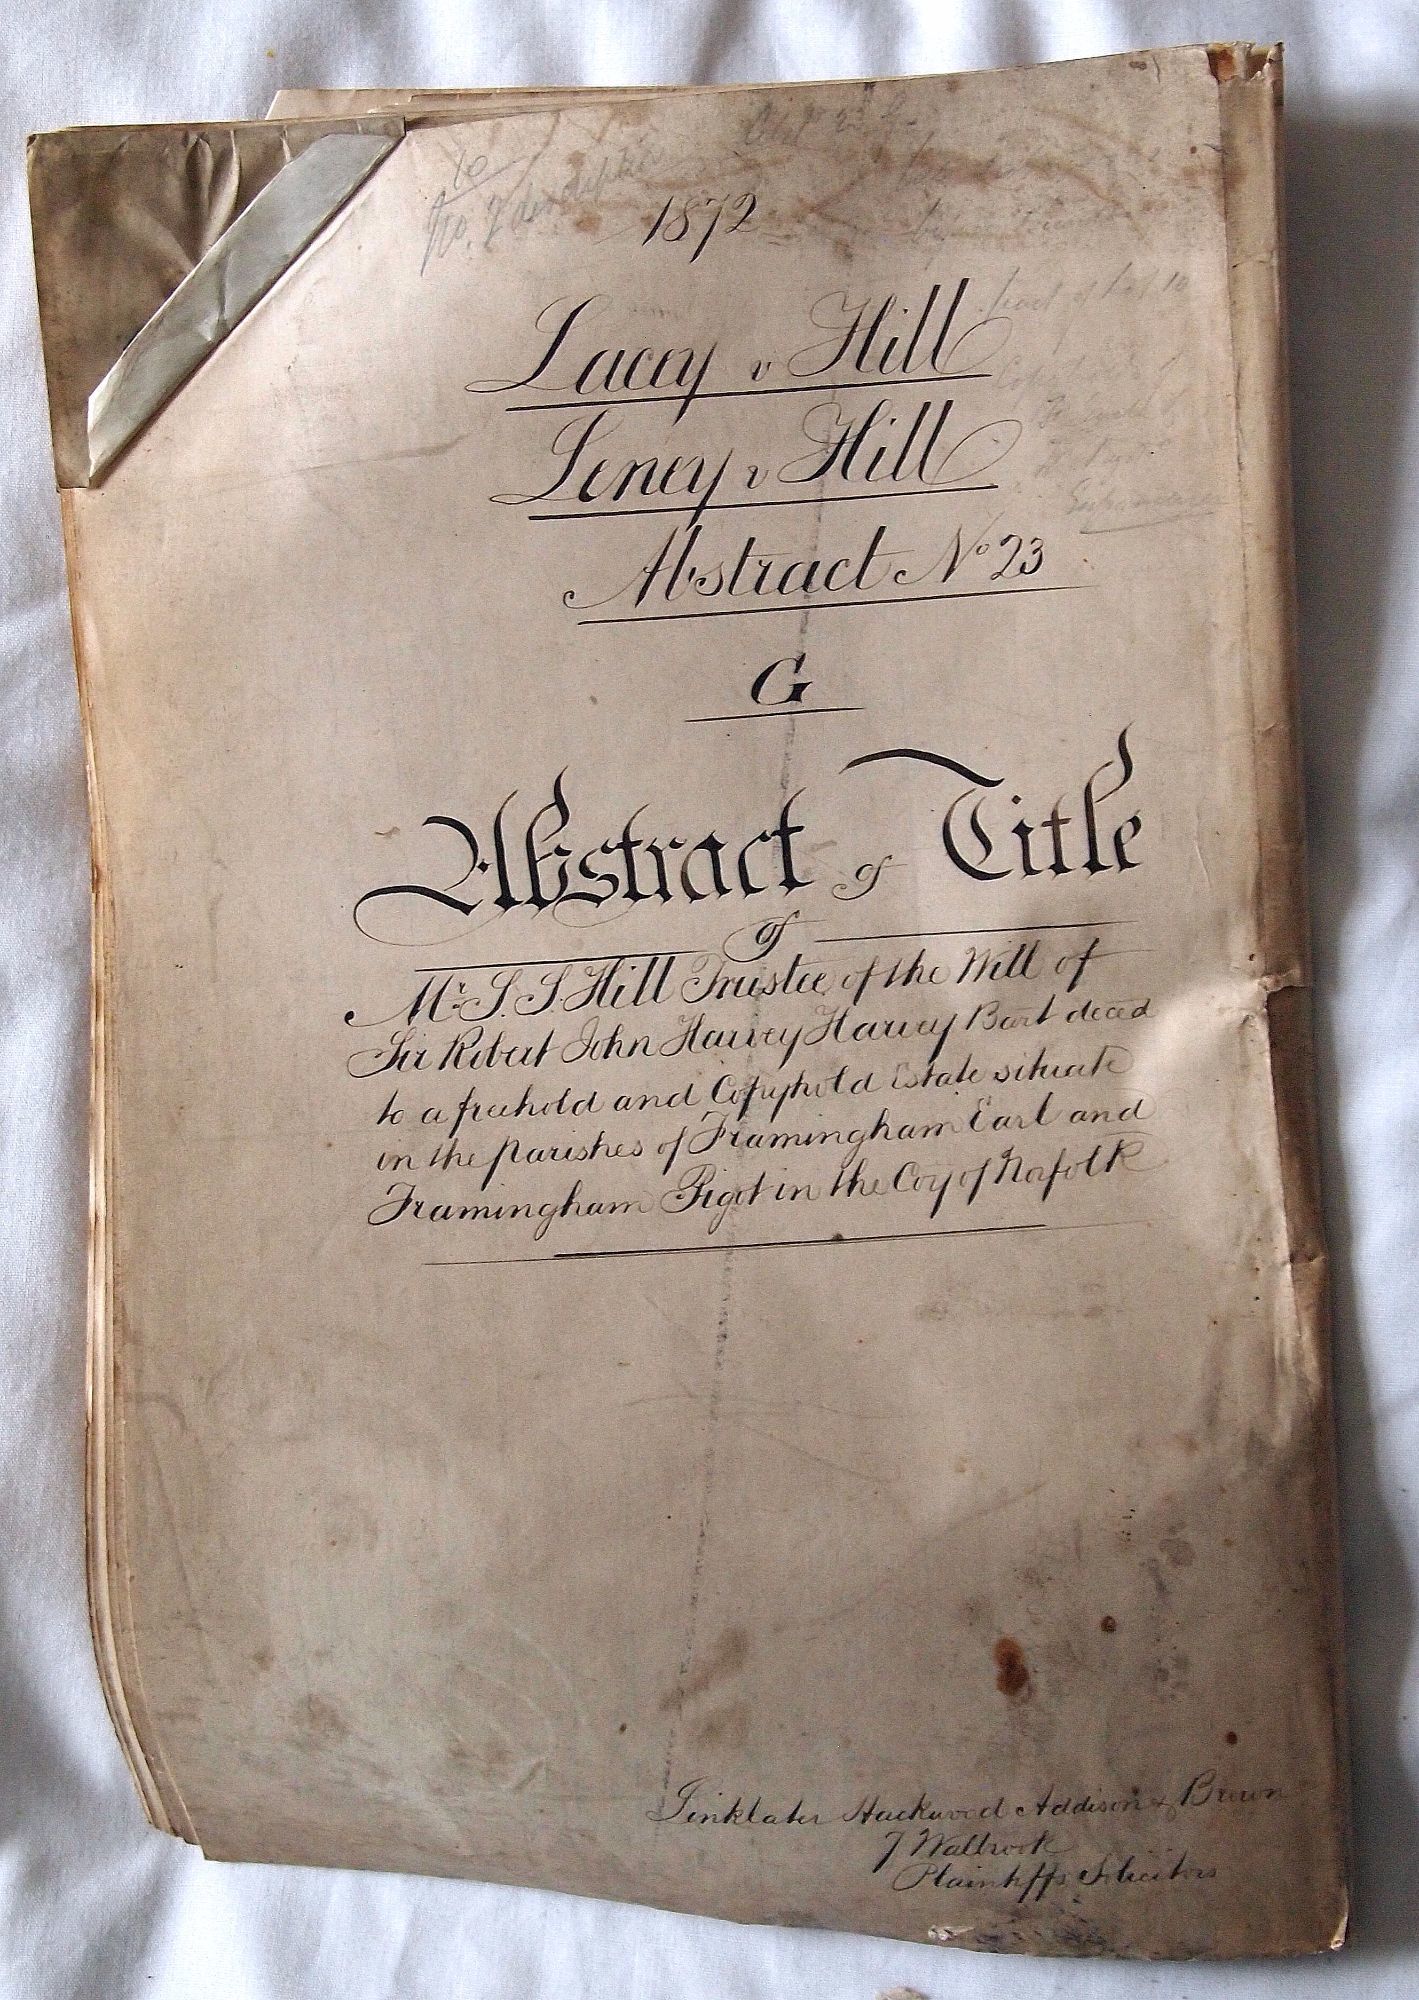 to
No. 7 description
1872
Lacey v Hill
Leney v Hill
Abstract No 23
G
Abstract of Title
of
Mr. S. S. Hill Trustee of the Will of
Sir Robert John Harvey Harvey Bart deced
to a freehold and Copyhold Estate situate
in the parishes of Framingham Earl and
Framingham Pigot in the Coy of Norfolk
Linklater Hackwood Addison & Brown
7 Walbrook
Plaintiffs Solicitors